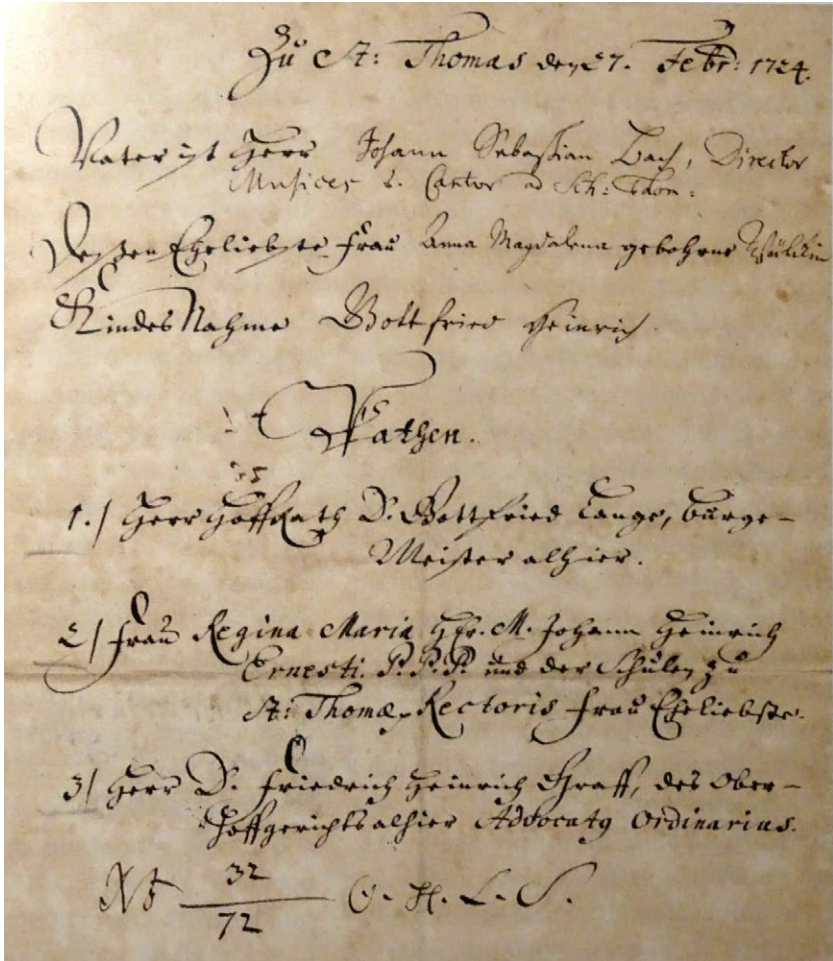 Zu St: Thomas den 27. Febr: 1724.
Vater ist Herr Johann Sebastian Bach, Director
Musices u. Cantor ad Sch: Thom:
Deßen Eheliebste Frau Anna Magdalena gebohrne Wülckin
Kindes Nahme Gottfried Heinrich.
Pathen.
1./ Herr HoffRath D. Gottfried Lange, Burge-
Meister alhier.
2/ Frau Regina Maria Hfr. M. Johann Heinrich
Ernesti. P. P. P. und der Schulen zu
St: Thomæ, Rectoris Frau Eheliebste.
3/ Herr D. Friedrich Heinrich Graff, des Ober-
Hoffgerichts alhier Advocatq Ordinarius.
32
72
G. H. L. S.